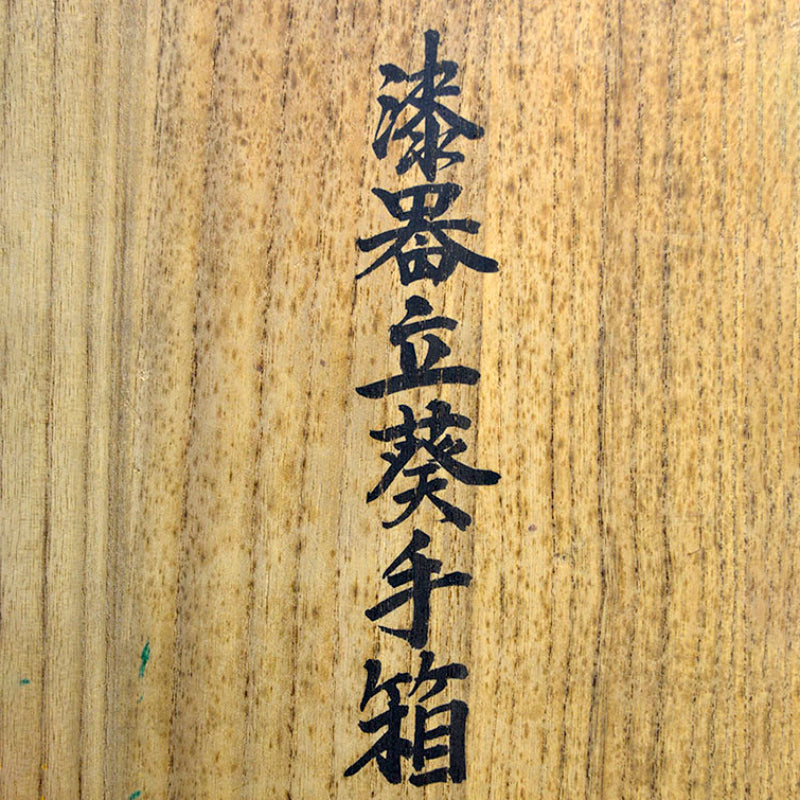 漆器立葵手箱